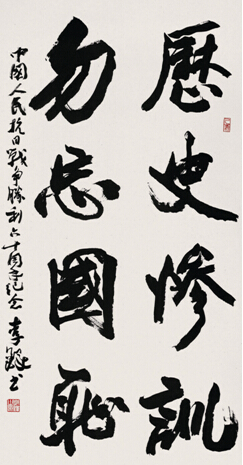 歷史慘訓
勿忘國恥
中國人民抗日戰争勝利六十周年纪念 李鐸书